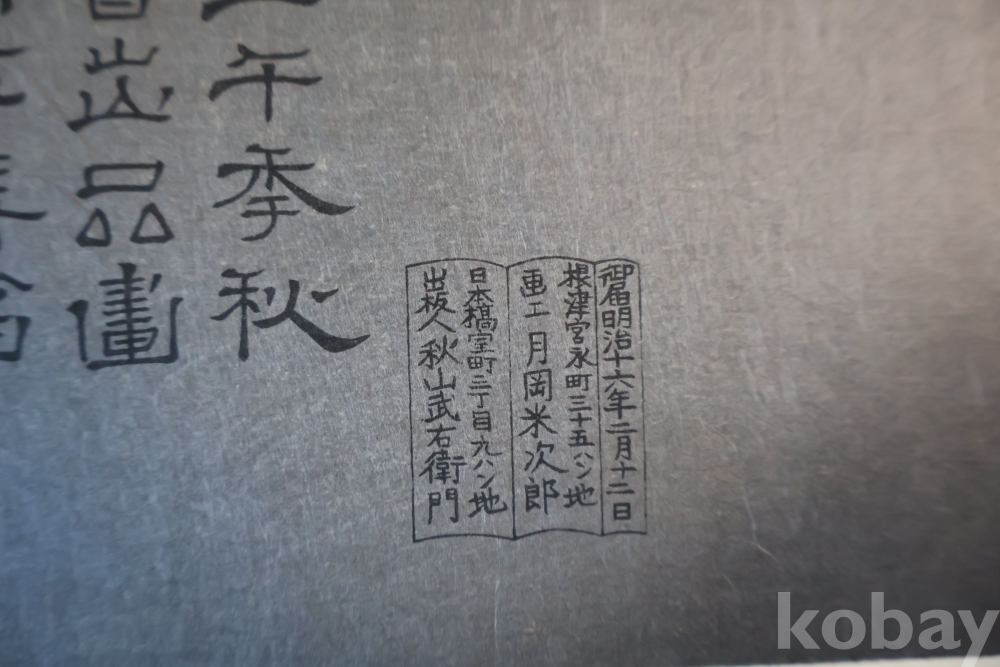 午季秋
出品畫
御届明治十六年二月十二日
根津宮永町三十五ハン地
畫工 月岡米次郎
日本橋室町三丁目九ハン地
出板人 秋山武右衛門
kobay